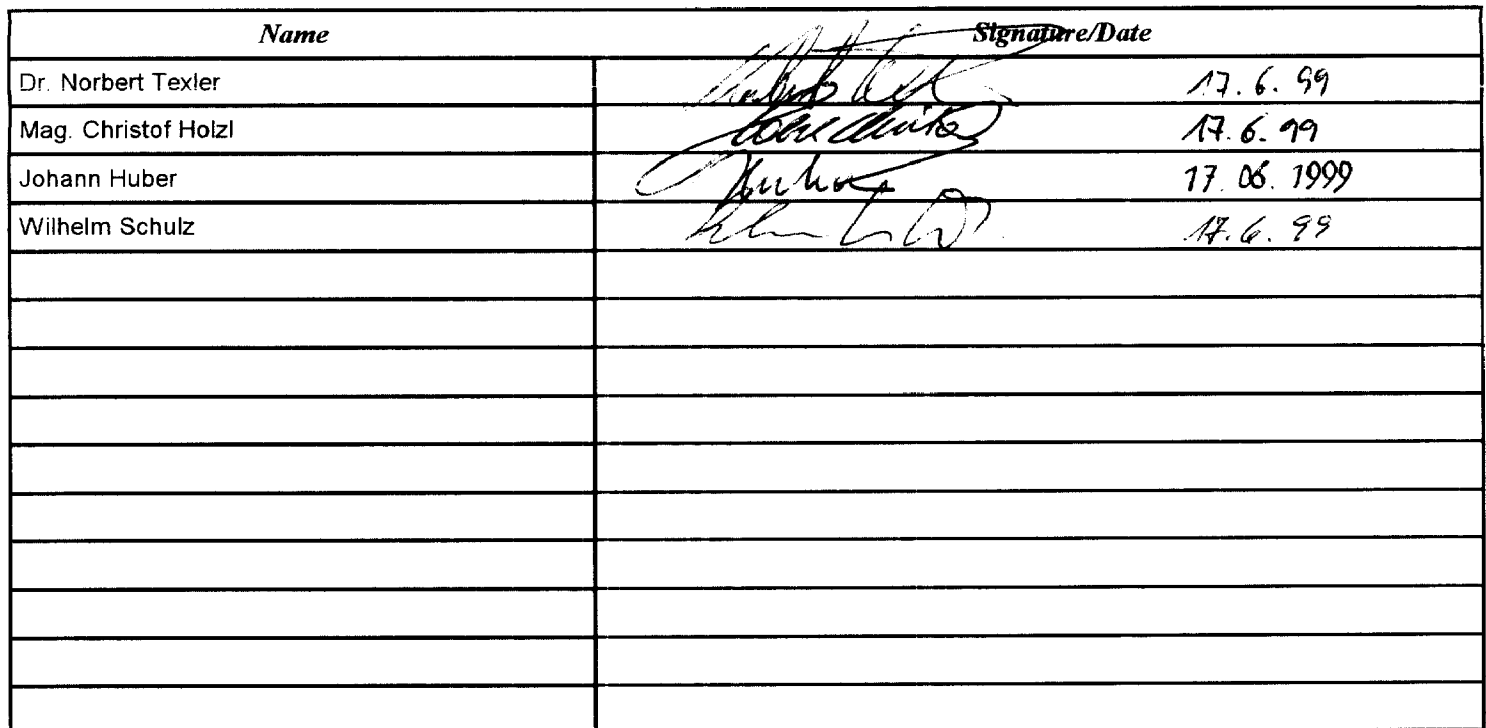 Name Signature/Date
Dr. Norbert Texler 17.6.99
Mag. Christof Holzl 17.6.99
Johann Huber Huber 17.06.1999
Wilhelm Schulz 17.6.99